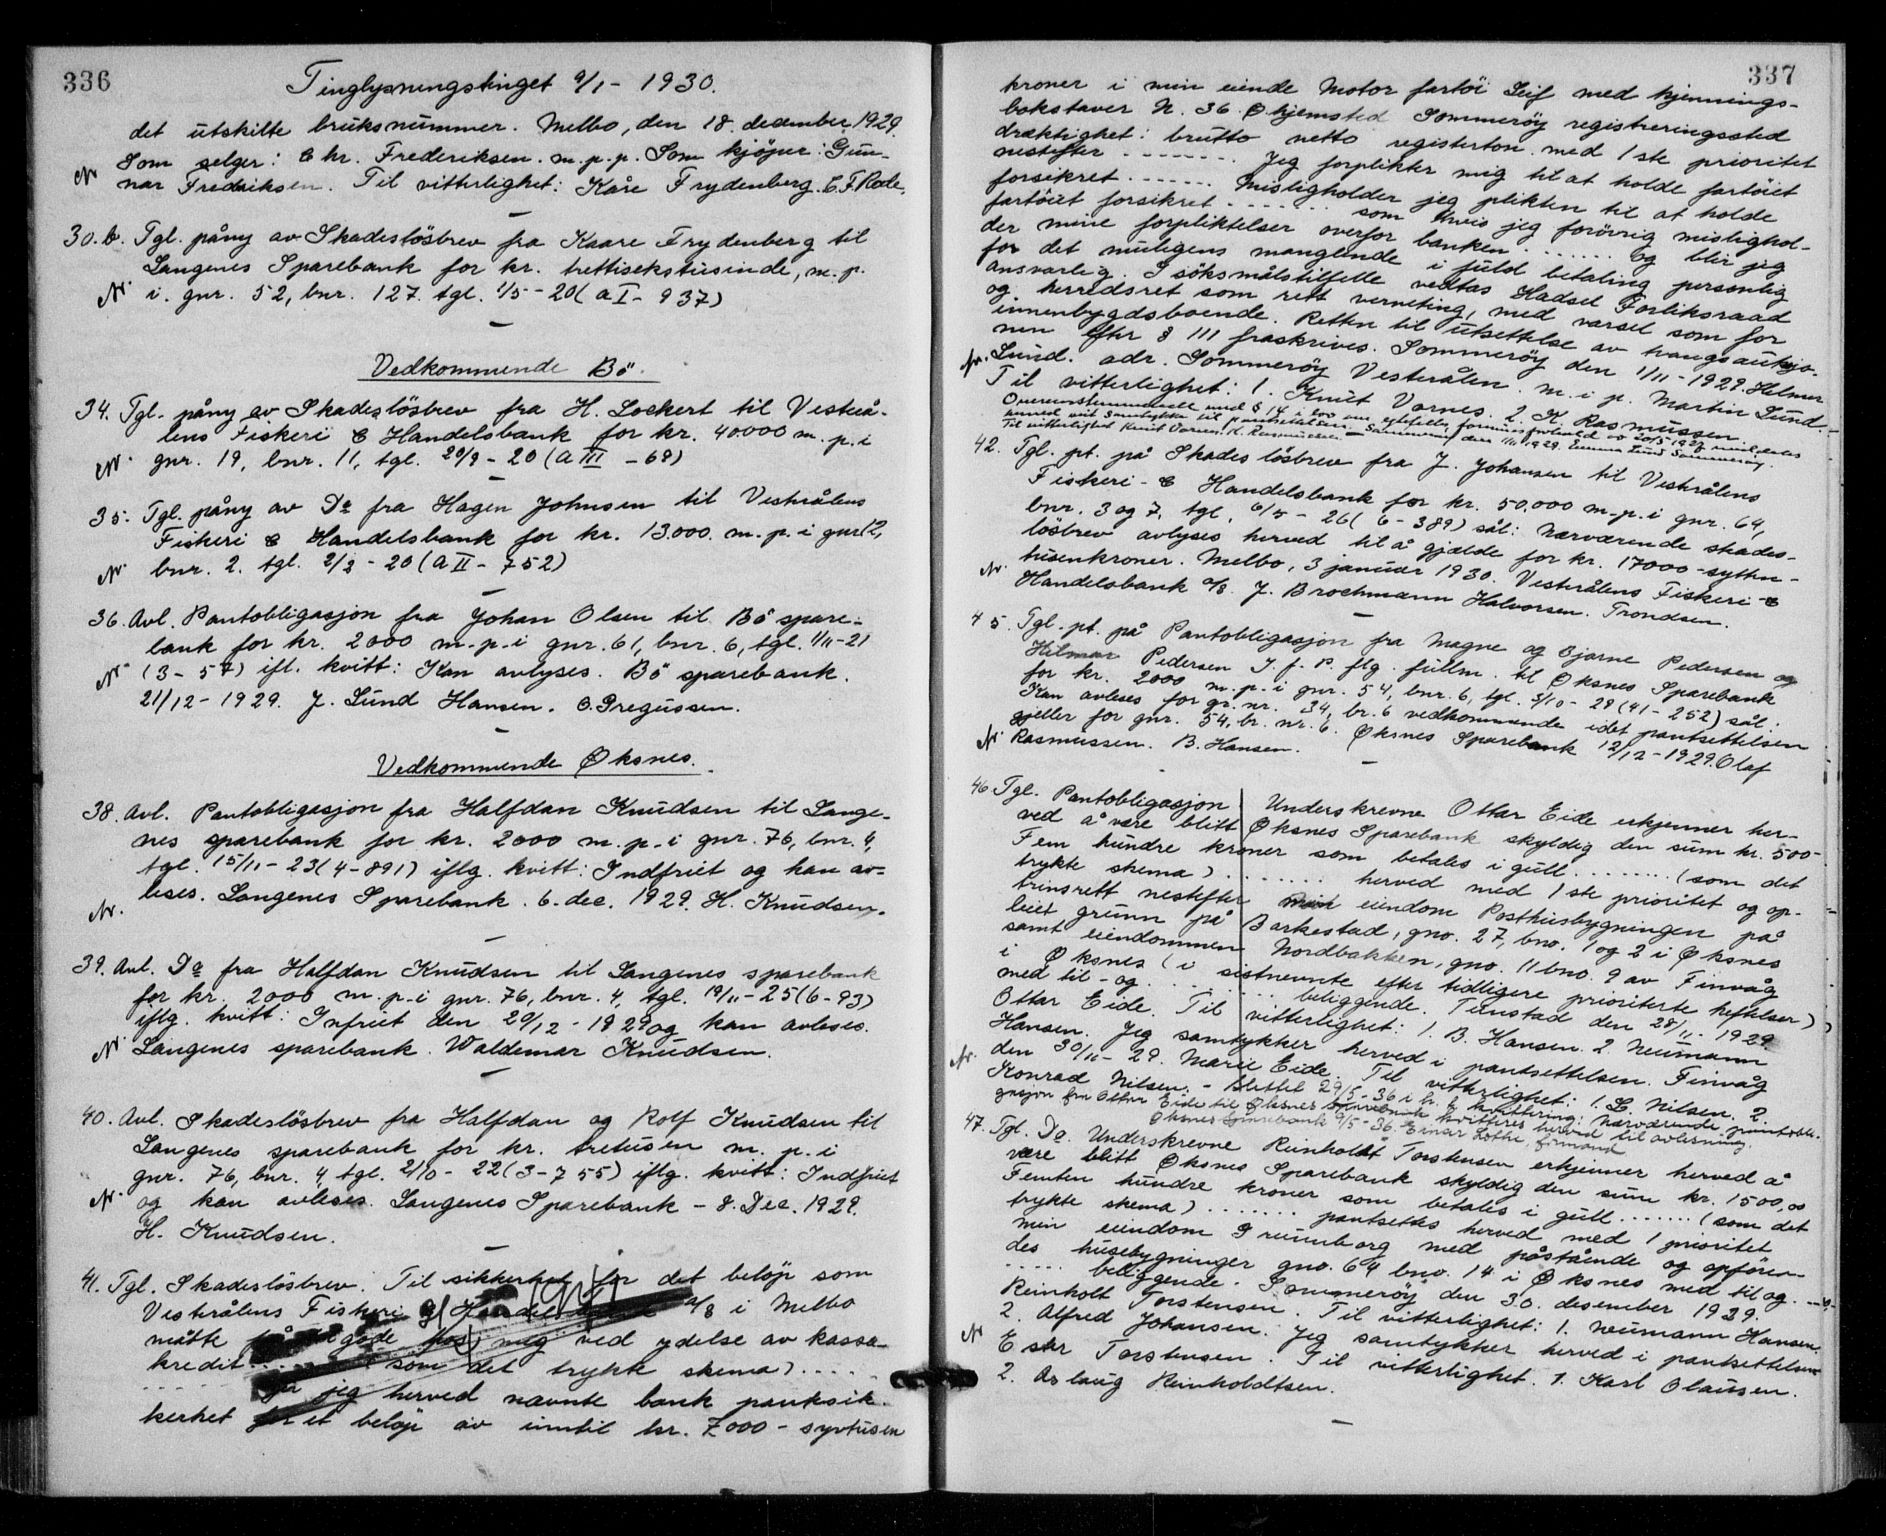 336
Tinglysningstinget 9/1 - 1930.
det utskilte bruksnummer. Melbo, den 18. december 1929.
Som selger: Chr. Frederiksen. m.p.p. Som kjöper: Gun-
nar Fredriksen. Til vitterlighet: Kåre Frydenberg. C. F. Rode.
30.b. Tgl. påny av Skadeslösbrev fra Kaare Frydenberg til
Langenes Sparebank for kr. trettisekstusinde, m. p.
i. gnr. 52, bnr. 127. tgl. 1/5 - 20 (a I - 937)
Vedkommende Bö.
34. Tgl. påny av Skadeslösbrev fra H. Lockert til Vesterå-
lens Fiskeri & Handelsbank for kr. 40.000 m. p. i
gnr. 19, bnr. 11, tgl. 20/9 - 20 (a III - 69)
35. Tgl. påny av Do fra Hagen Johnsen til Vesterålens
Fiskeri & Handelsbank for kr. 13.000. m. p. i gnr. 12,
bnr. 2. tgl. 2/3 - 20 (a II - 752)
36. Avl. Pantobligasjon fra Johan Olsen til Bö spare-
bank for kr. 2000 m. p. i gnr. 61, bnr. 6, tgl. 1/11 - 21
(3 - 57) ifl. kvitt: Kan avlyses. Bö sparebank.
21/12 - 1929. J. Lund Hansen. O. Gregussen.
Vedkommende Øksnes.
38. Avl. Pantobligasjon fra Halfdan Knudsen til Lange-
nes sparebank for kr. 2000 m. p. i gnr. 76, bnr. 4,
tgl. 15/11 - 23 (4 - 891) iflg. kvitt: Indfriet og kan av-
leses. Langenes Sparebank. 6. dec. 1929. H. Knudsen.
39. Avl. Do fra Halfdan Knudsen til Langenes sparebank
for kr. 2000 m. p. i gnr. 76, bnr. 4, tgl. 19/11 - 25 (6 - 93)
iflg. kvitt: Infriet den 20/12 - 1929 og kan avleses.
Langenes sparebank. Waldemar Knudsen.
40. Avl. Skadeslösbrev fra Halfdan og Rolf Knudsen til
Langenes sparebank for kr. tretusen m. p. i
gnr. 76, bnr. 4, tgl. 2/10 - 22 (3 - 755) iflg. kvitt: Indfriet
og kan avleses. Langenes Sparebank - 8. Dec. 1929.
H. Knudsen.
41. Tgl. Skadeslösbrev. Til sikkerhet for det belöp som
Vesterålens Fiskeri & Handelsbank a/s i Melbo
måtte få tilgode hos mig ved ydelse av kassa-
kredit ..... (som det trykte skema) .....
..... gir jeg herved nævnte bank pantsik-
kerhet for et belöp av inntil kr. 7000 - syvtusen
337
kroner i min eiende Motor fartöi Leif med kjennings-
bokstaver N. 36. Ø. hjemsted Sommeröy registreringssted
dræktighet: brutto netto registerton. med 1ste prioritet
nestefter ....... Jeg forplikter mig til at holde fartöiet
forsikret ...... Misligholder jeg plikten til at holde
fartöiet forsikret ....... som hvis jeg forövrig mislighol-
der mine forpliktelser overfor banken ...... og blir jeg
for det muligens manglende i fuld betaling personlig
ansvarlig. I söksmålstilfelle vedtas Hadsel Forliksraad
og herredsret som rett verneting, med varsel som for
innenbygdsboende. Retten til utsettelse av tvangsauksjo-
nen efter § 111 fraskrives. Sommeröy den 1/11 - 1929. Helmer
Lund. adr. Sommeröy Vesterålen. m. i. p. Martin Lund.
Til vitterlighet: 1. Knut Vornes. 2. K. Rasmussen.
Overensstemmende med § 14 i lov om ektefellers formuesforhold av 20/5 1927 meddeles
herved mit samtykke til pantsettelsen. - Sommeröy den 1/11 1929. Emma Lund Sommeröy.
Til vitterlighet Knut Vornes. K. Rasmussen.
42. Tgl. pt. på Skadeslösbrev fra J. Johansen til Vesterålens
Fiskeri- & Handelsbank for kr. 50.000 m. p. i gnr. 64,
bnr. 3 og 7, tgl. 6/5 - 26 (6 - 389) sål: Nærværende skades-
lösbrev avlyses herved til å gjælde for kr. 17000 - sytten-
tusenkroner. Melbo, 3 januar 1930. Vesterålens Fiskeri- &
Handelsbank a/s. J. Brochmann Halvorsen. Trondsen.
45. Tgl. pt. på Pantobligasjon fra Magne og Bjarne Pedersen og
Hilmar Pedersen I. f. P. flg. fullm. til Øksnes Sparebank
for kr. 2000 m. p. i gnr. 54, bnr. 6, tgl. 3/10 - 29 (41 - 252) sål.
Kan avleses for gr. nr. 34, br. 6 vedkommende idet pantsettelsen
gjeller for gnr. 54, br. nr. 6. Øksnes Sparebank 12/12 - 1929. Olaf
Rasmussen. B. Hansen.
46. Tgl. Pantobligasjon Underskrevne Ottar Eide erkjenner her-
ved å være blitt Øksnes Sparebank skyldig den sum kr. 500 -
Fem hundre kroner som betales i gull ......... (som det
trykte skema) ........ herved med 1ste prioritet og op-
trinsrett nestefter min eiendom Posthusbygningen på
leiet grunn på Barkestad, gno. 27, bno. 1 og 2 i Øksnes
samt eiendommen Nordbakken, gno. 11 bno. 9 av Finvåg
i Øksnes (i sistnevnte efter tidligere prioriterte heftelser)
med til- og ........ beliggende. Tunstad den 28/11 - 1929.
Ottar Eide. Til vitterlighet: 1. B. Hansen. 2. Neumann
Hansen. Jeg samtykker herved i pantsettelsen. Finvåg
den 30/11 - 29. Marie Eide. Til vitterlighet: 1. L. Nilsen. 2.
Konrad Nilsen. - Slettet 29/5 - 36 i h. t. kvittering: Nærværende pantobli-
gasjon fra Ottar Eide til Øksnes Sparebank kvitteres herved til avlesning
Øksnes Sparebank 9/5 - 36. Einar Lothe, formand
47. Tgl. Do. Underskrevne Reinholdt Torstensen erkjenner herved å
være blitt Øksnes Sparebank skyldig den sum kr. 1500,00
Femten hundre kroner som betales i gull ...... (som det
trykte skema) ....... pantsettes herved med 1 prioritet
min eiendom Grunnborg med påstående og opfören-
des husebygninger gno. 64 bno. 14 i Øksnes med til og .....
..... beliggende. Sommeröy den 30. desember 1929.
Reinholt Torstensen. Til vitterlighet: 1. Neumann Hansen.
2. Alfred Johansen. Jeg samtykker herved i pantsettelsen
Ester Torstensen. Til vitterlighet. 1. Karl Olausen.
2. Aslaug Reinholdtsen.